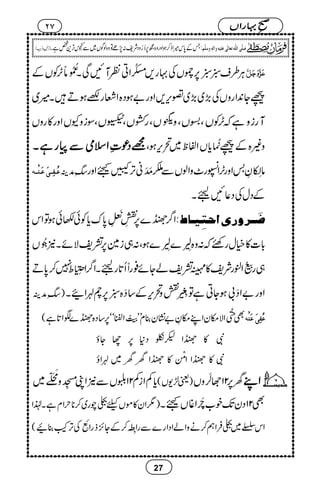 صبح بہاراں
۲۷
فرمان مصطفےٰ صلی اللہ تعالیٰ علیہ والہٖ وسلم: جس کے پاس میرا ذکر ہو اور وہ مجھ پر درود شریف نہ پڑھے تو وہ لوگوں میں سے کنجوس ترین شخص ہے۔
ہر طرف سبز سبز پرچموں کی بہاریں مسکراتی نظر آئیں گی۔ عُموماً ٹرکوں کے
پیچھے جانداروں کی بڑی بڑی تصویریں اور بے ہودہ اشعار لکھے ہوتے ہیں۔ میری
آرزو ہے کہ ٹرکوں، بسوں، ویگنوں، رکشوں، ٹیکسیوں، سوزوکیوں اور کاروں
وغیرہ کے پیچھے نُمایاں الفاظ میں تحریر ہو، مجھے دعوتِ اسلامی سے پیار ہے۔
مالکانِ بس اور ٹرانسپورٹ والوں سے مل کر مدنی ترکیبیں کیجئے اور سگِ مدینہ عُفِیَ عَنْہُ
کے دل کی دعائیں لیجئے۔
ضروری احتیاط: اگر جھنڈے پر نقشِ نعلِ پاک یا کوئی لکھائی ہو تو اس
بات کا خیال رکھئے کہ نہ وہ لیرے لیرے ہو، نہ ہی زمین پر تشریف لائے۔ نیز جُوں
ہی ربیع النور شریف کا مہینہ تشریف لے جائے فوراً اُتار لیجئے۔ اگر احتیاط نہیں کر پاتے
اور بے ادبی ہو جاتی ہے تو بغیر نقش و تحریر کے سادہ سبز پرچم لہرائیے۔ (سگِ مدینہ
عُفِیَ عَنْہُ بھی حتَّی الامکان اپنے مکانِ بے نشان بنام "بیت الفنا" پر سادہ جھنڈے لگواتا ہے)
نبی کا جھنڈا لیکر نکلو دنیا پر چھا جاؤ
نبی کا جھنڈا امن کا جھنڈا گھر گھر میں لہراؤ
اپنے گھر پر ۱۲ جھالروں (یعنی لڑیوں) یا کم از کم ۱۲ بلبوں سے نیز اپنی مسجد و محلّے میں
بھی ۱۲ دن تک خوب چَراغاں کیجئے۔ (مگر ان کاموں کیلئے بجلی چوری کرنا حرام ہے۔ لہٰذا
اس سلسلے میں بجلی فراہم کرنے والے ادارے سے رابطہ کرکے جائز ذرائع کی ترکیب بنائیے)
27